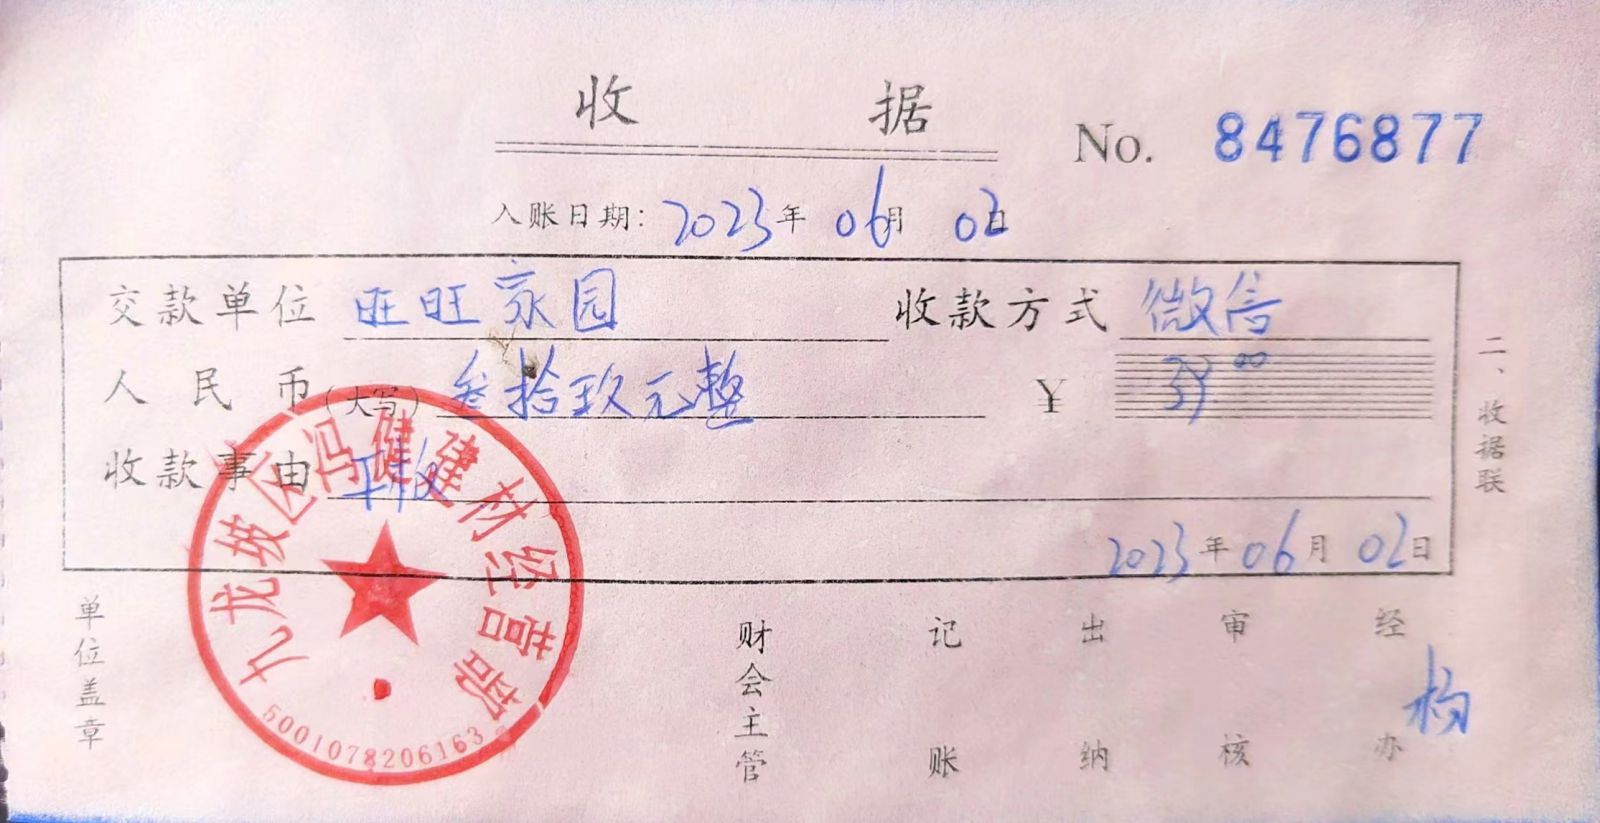 收 据
No. 8476877
入账日期: 2023年 06月 02日
交款单位 旺旺家园 收款方式 微信
人民币(大写) 叁拾玖元整 ¥ 39 00
收款事由
2023年 06月 02日
二、收据联
单位盖章
财会主管 记账 出纳 审核 经办 杨
九龙坡区冯健健材经营部
5001078206163